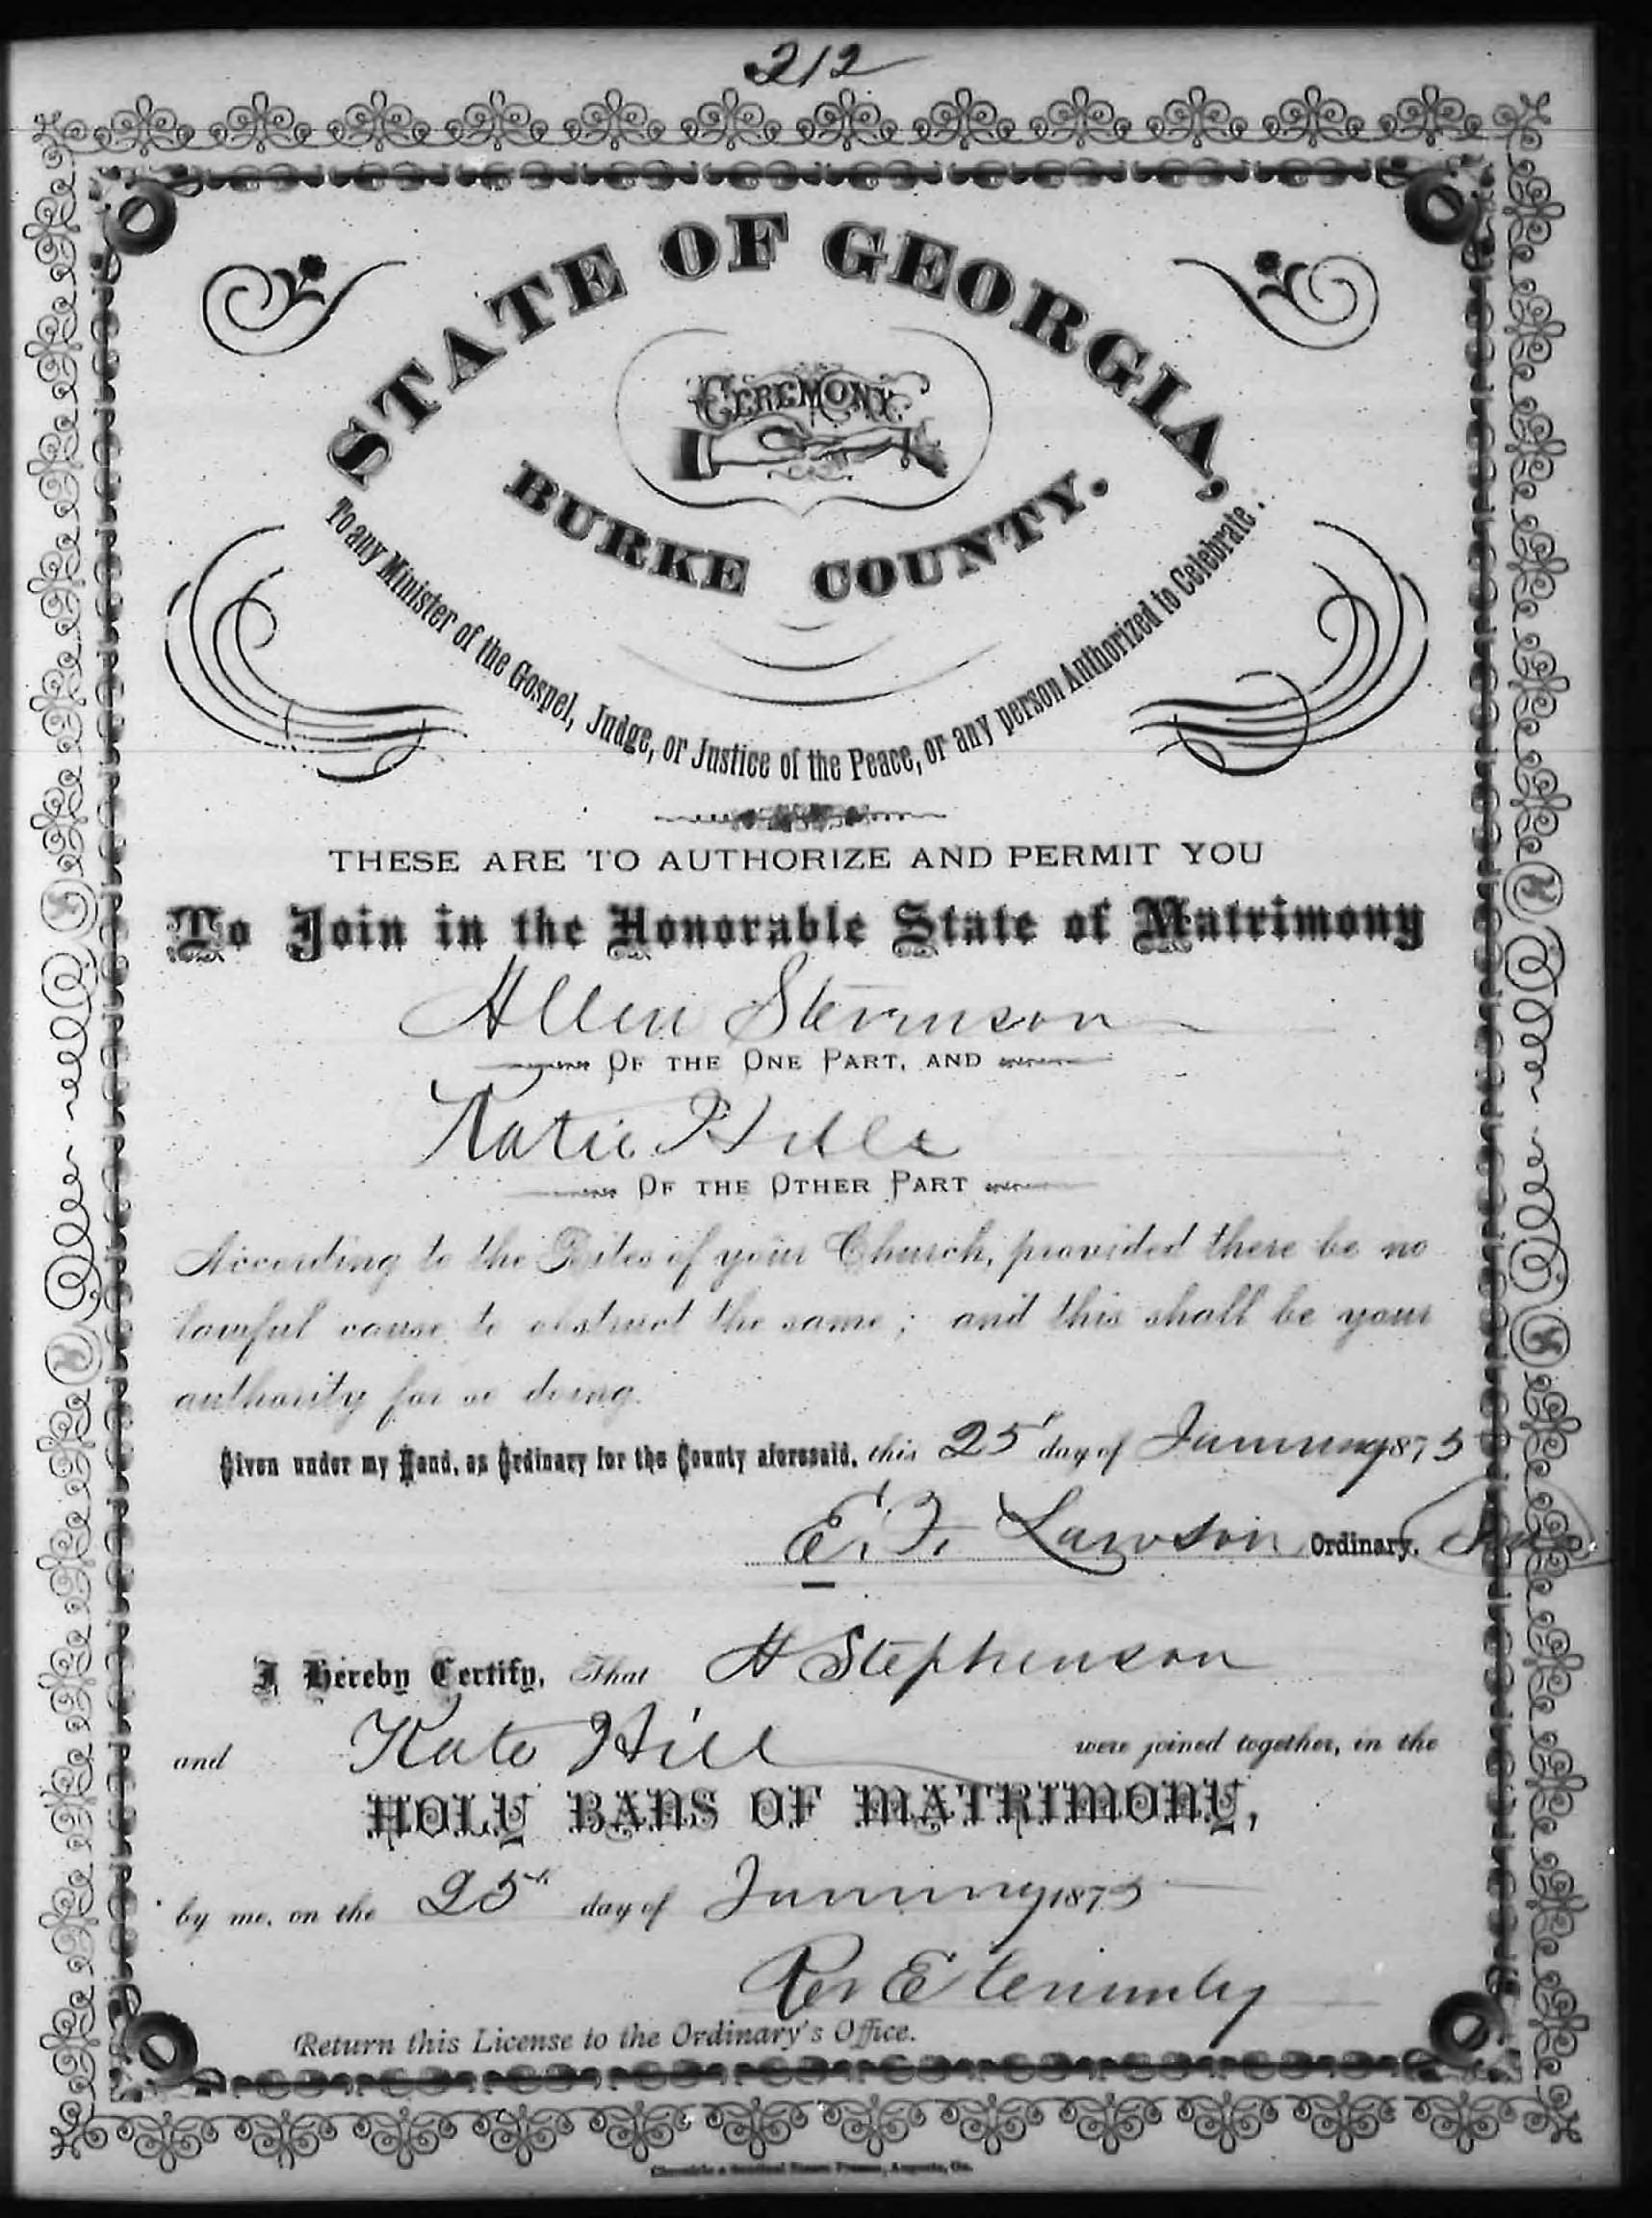 212
STATE OF GEORGIA,
CEREMONY
BURKE COUNTY.
To any Minister of the Gospel, Judge, or Justice of the Peace, or any person Authorized to Celebrate.
THESE ARE TO AUTHORIZE AND PERMIT YOU
To Join in the Honorable State of Matrimony
Allen Stevenson
OF THE ONE PART, AND
Katie Hill
OF THE OTHER PART
According to the Rites of your Church, provided there be no
lawful cause to obstruct the same; and this shall be your
authority for so doing.
Given under my Hand, as Ordinary for the County aforesaid, this 25 day of January 1875
E. F. Lawson Ordinary.
I Hereby Certify, That H Stephenson
and Kate Hill were joined together, in the
HOLY BANS OF MATRIMONY,
by me, on the 25th day of January 1875
Rev E
Return this License to the Ordinary's Office.
Chronicle & Sentinel Steam Presses, Augusta, Ga.